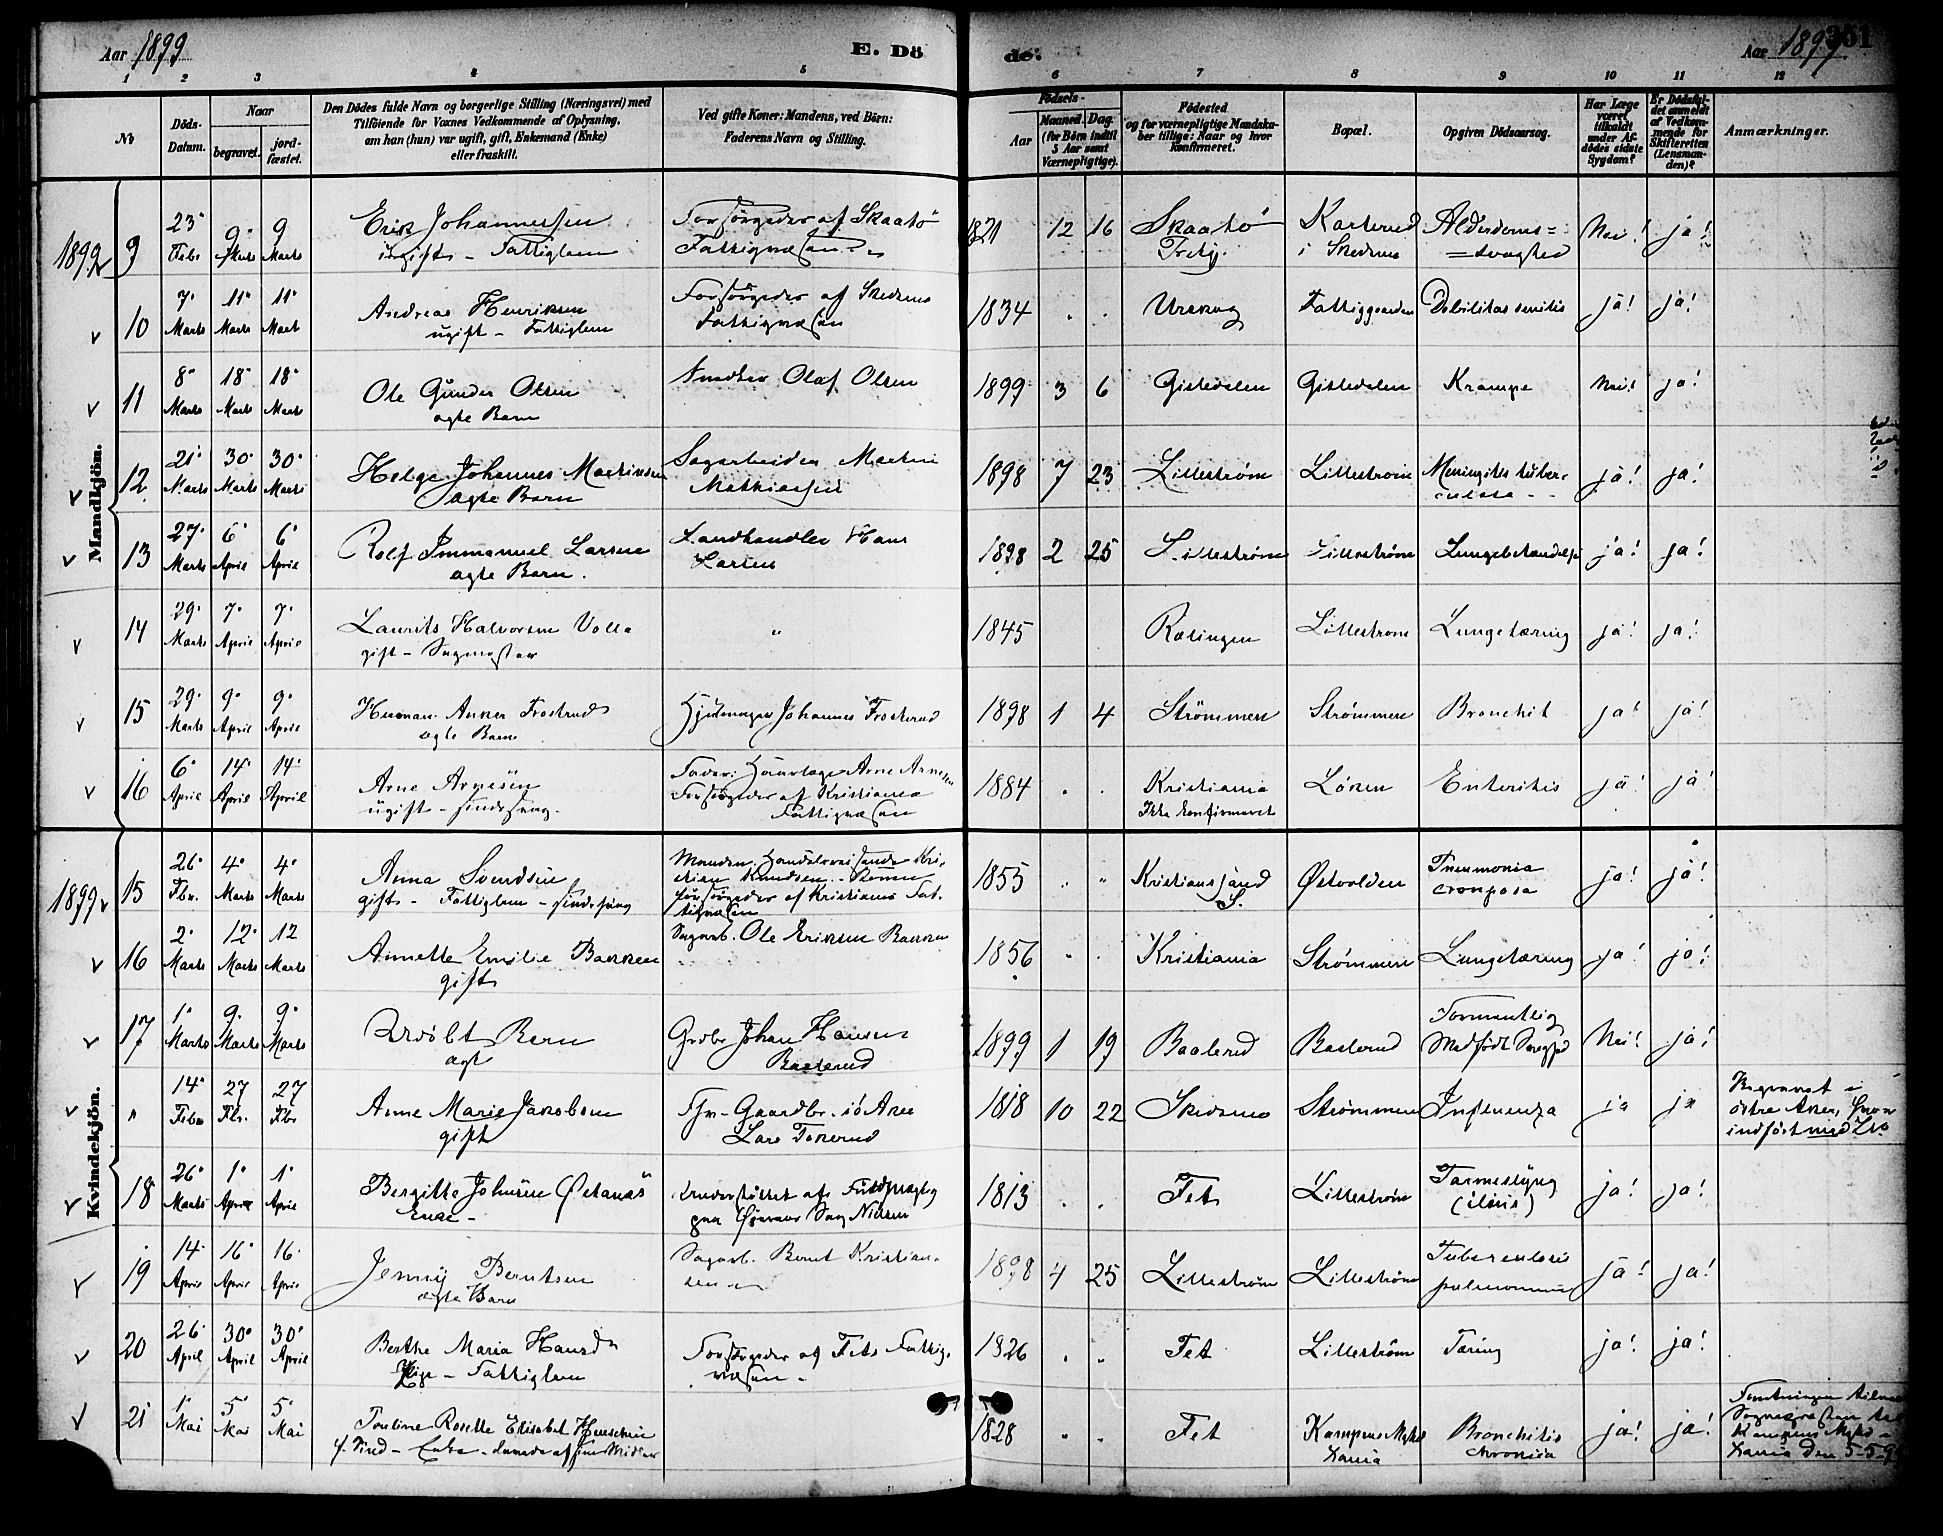 Aar 1899
E. Dö
de.
Aar 1899
351
1 2 3 4 5 6 7 8 9 10 11 12
No
Döds-Datum.
Naar
begravet.
jord-fæstet.
Den Dödes fulde Navn og borgerlige Stilling (Næringsvei) med
Tilföiende for Voxnes Vedkommende af Oplysning,
om han (hun) var ugift, gift, Enkemand (Enke)
eller fraskilt.
Ved gifte Koner: Mandens, ved Börn:
Faderens Navn og Stilling.
Födsels-
Aar
Maaned. Dag.
(for Börn indtil
5 Aar samt
Værnepligtige).
Födested
og for værnepligtige Mandska-
ber tillige: Naar og hvor
konfirmeret.
Bopæl.
Opgiven Dödsaarsag.
Har Læge
været
tilkaldt
under Af-
dödes sidste
Sygdom?
Er Dödsfal-
det anmeldt
af Vedkom-
mende for
Skifteretten
(Lensman-
den)?
Anmærkninger.
Mandkjön.
1899 9 23 Febr 9 Marts 9 Marts Erik Johannessen Forsörges af Skaatö 1821 12 16 Skaatö Karterud Alderdoms= Nei! ja!
ugift - Fattiglem Fattigvæsen i Skedsmo =svaghed
10 7 Marts 11 Marts 11 Mart Andreas Henriksen Forsörges af Skedsmo 1834 Urskog Fattiggaarden Debilitas senilis ja! ja!
ugift - Fattiglem Fattigvæsen
11 8 Marts 18 Marts 18 Marts Ole Gunder Olsen Snedker Olaf Olsen 1899 3 6 Gistedalen Gistedalen Krampe Nei! ja!
ægte Barn
12 21 Marts 30 Marts 30 Marts Helge Johannes Martinsen Sagarbeider Martin 1898 7 23 Lilleström Lilleström Meningitis tuber- ja! ja!
ægte Barn Mathiesen culosa
13 27 Marts 6 April 6 April Rolf Immanuel Larsen Landhandler Hans 1898 2 25 Lilleström Lilleström Lungebetændelse ja! ja!
ægte Barn. Larsen
14 29 Marts 7 April 7 April Laurits Halvorsen Volla " 1845 Rælingen Lilleström Lungetæring ja! ja!
gift - Sagmester
15 29 Marts 9 April 9 April Herman Anker Frosterud Hjulmager Johannes Frosterud 1898 1 4 Strömmen Strömmen Bronchit ja! ja!
ægte Barn
16 6 April 14 April 14 April Arne Arnesen Fader: Arne Arnesen 1884 Kristiania Lören Enteritis ja! ja!
ugift - sindssyg. Forsörges af Kristiania Ikke konfirmeret
Fattigvæsen
Kvindekjön.
1899 15 26 Fbr. 4 Marts 4 Marts Anna Svendsen Manden: Handelsreisende Kri- 1855 " " Kristianssand Østvolden Pneumonia ja! ja!
gift - Fattiglem - sindssyg stian Knudsen. - Konen S. crouposa
forsörges af Kristiania Fat-
tigvæsen
16 2 Marts 12 Marts 12 Marts Annette Emilie Bakken Sagarb. Ole Eriksen Bakken 1856 Kristiania Strömmen Lungetæring ja! ja!
gift
17 1 Marts 9 Marts 9 Marts Udöbt Barn Grdbr Johan Hansen 1899 1 19 Baalerud Baalerud Formentlig Nei! ja!
ægt Baalerud Medfödt Svaghed
" 14 Febr 27 Fbr. 27 Fbr Anne Marie Jakobsen Fhv. Gaardbr. i ö Aker 1818 10 22 Skedsmo Strömmen Influenza ja ja Begravet i
gift Lars Tokerud östre Aker,
indfört
18 26 Marts 1 April 1 April Bergitte Johnsen Østanaas Understöttet af 1813 Fet Lilleström Tarmeslyng ja! ja!
Enke - paa Nielsen (ileus)
19 14 April 16 April 16 April Jenny Berntsen Sagarb. Bernt Kristian- 1898 4 25 Lilleström Lilleström Tuberculosis ja! ja!
ægte Barn sen pulmonum
20 26 April 30 April 30 April Berthe Maria Hansd Forsörges af Fets Fattig- 1826 Fet Lilleström Tæring ja! ja!
Pige - Fattiglem væsen -
21 1 Mai 5 Mai 5 Mai Pauline Rosette Elisabet 1828 Fet Kampens Bronchitis ja! ja!
Enke - levede af sine Midler Xania chronica Xania den 5-5-99